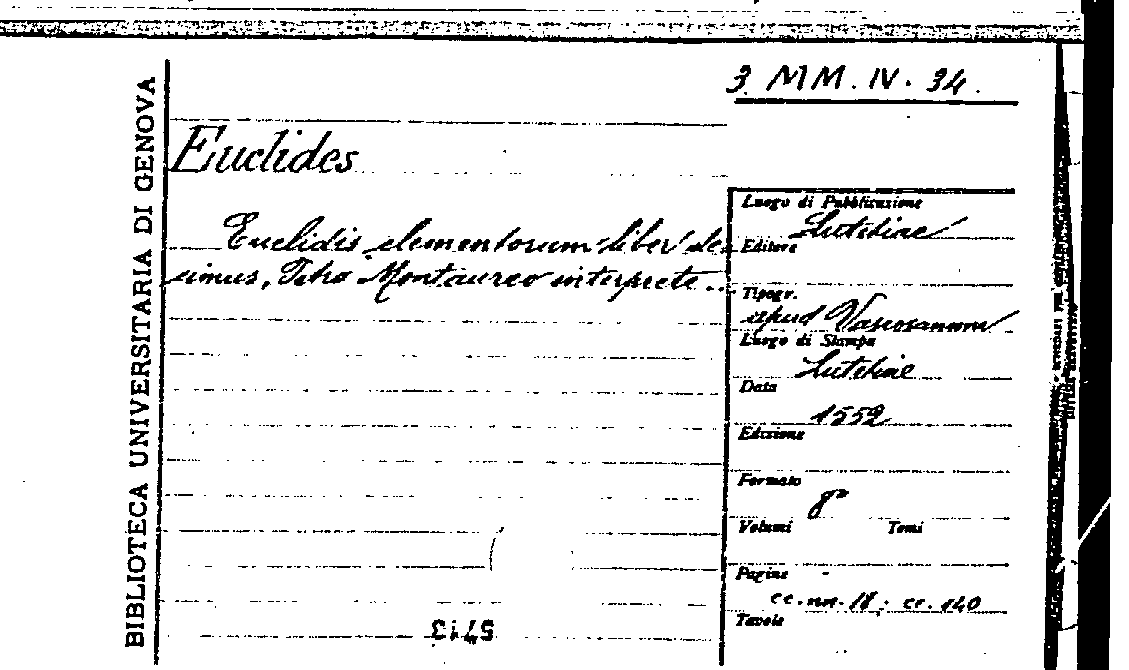 3 MM. IV. 34.
BIBLIOTECA UNIVERSITARIA DI GENOVA
Euclides
Euclidis elementorum liber de
cimus, Petro Montaureo interprete...
Luogo di Pubblicazione
Lutetiae
Editore
Tipogr.
apud Vascosanum
Luogo di Stampa
Lutetiae
Data
1552
Edizione
Formato
8º
Volumi Tomi
Pagine
cc. nn. 18; cc. 140
Tavole
5713